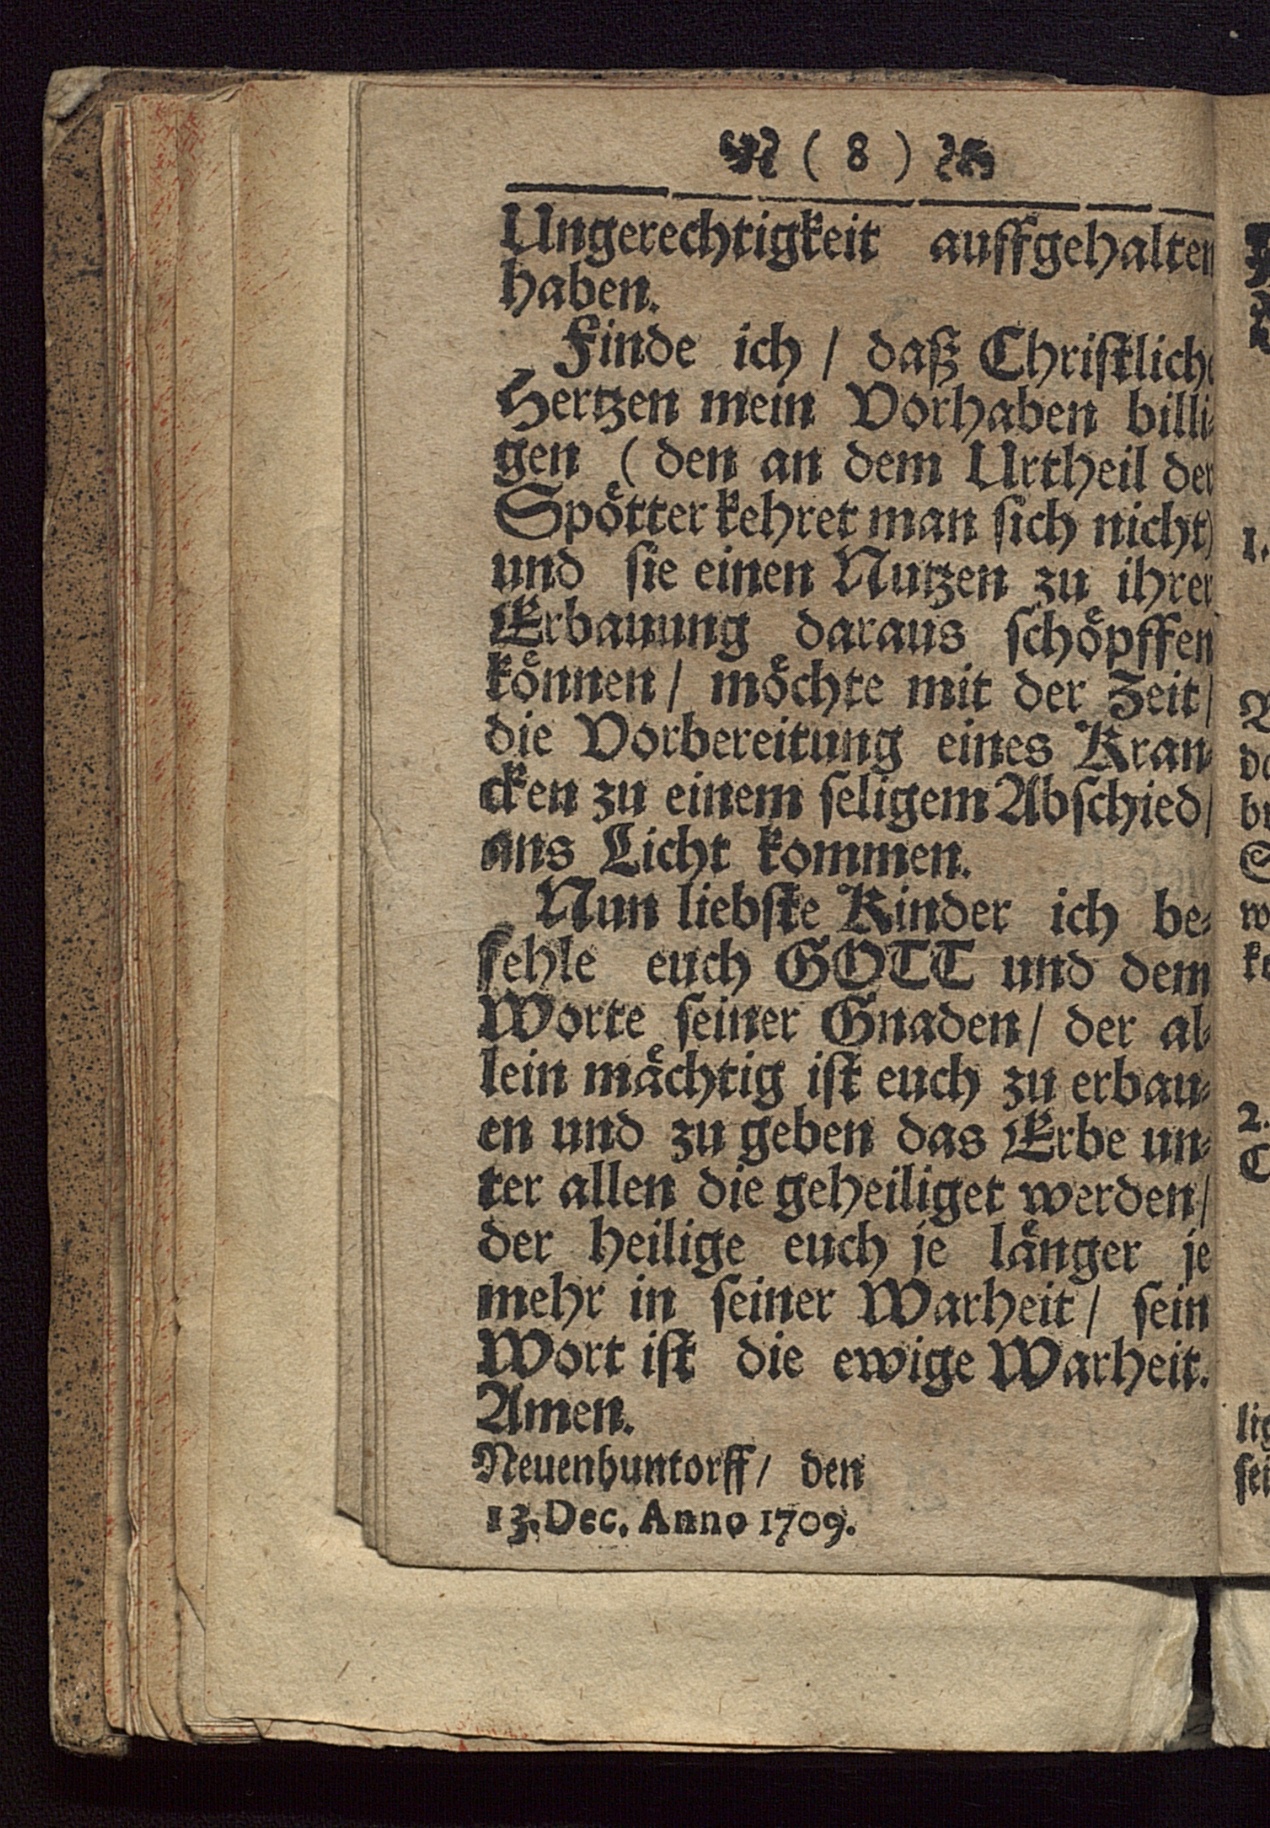 ( 8 )
Ungerechtigkeit auffgehalten
haben.
Finde ich / daß Christliche
Hertzen mein Vorhaben billi-
gen ( den an dem Urtheil der
Spötter kehret man sich nicht)
und sie einen Nutzen zu ihrer
Erbauung daraus schöpffen
können / möchte mit der Zeit /
die Vorbereitung eines Kran-
cken zu einem seligem Abschied /
ans Licht kommen.
Nun liebste Kinder ich be-
fehle euch GOTT und dem
Worte seiner Gnaden / der al-
lein mächtig ist euch zu erbau-
en und zu geben das Erbe un-
ter allen die geheiliget werden /
der heilige euch je länger je
mehr in seiner Warheit / sein
Wort ist die ewige Warheit.
Amen.
Neuenhuntorff / den
13. Dec. Anno 1709.
1.
2.